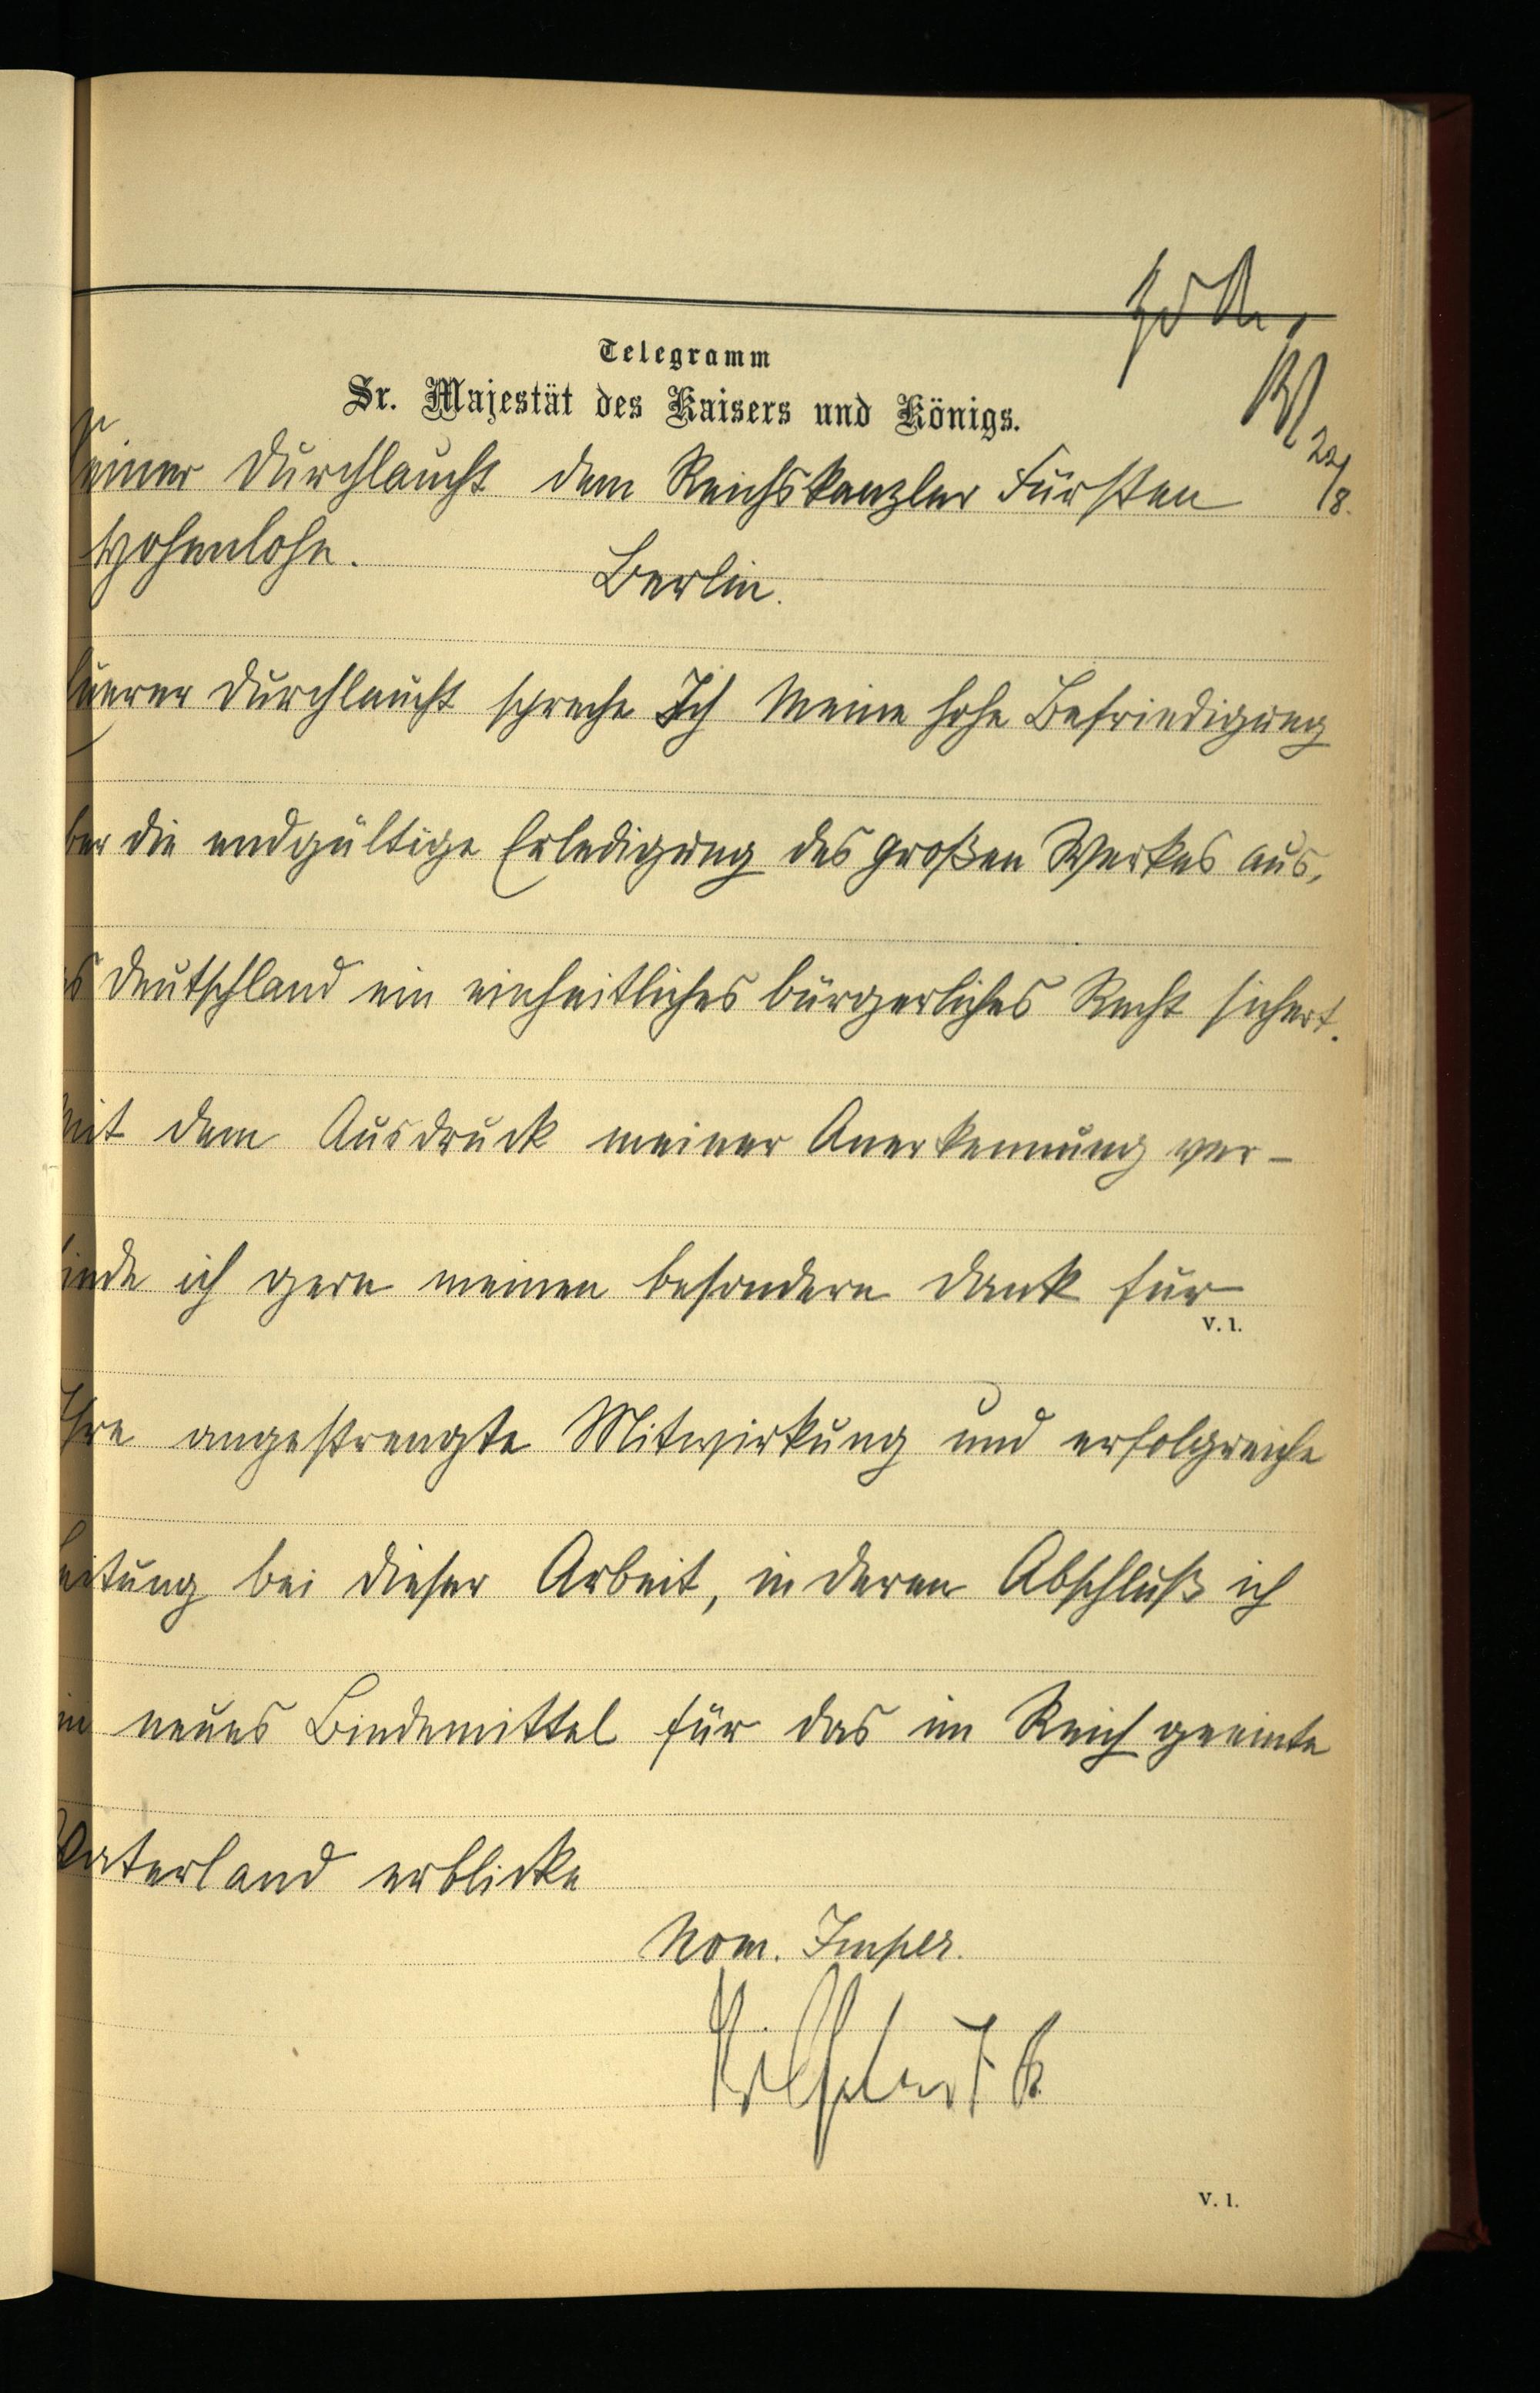 Telegramm
Sr. Majestät des Kaisers und Königs.
22/8.
Seiner Durchlaucht dem Reichskanzler Fürsten
Hohenlohe.
Berlin.
Euerer Durchlaucht spreche Ich Meine hohe Befriedigung
ber die endgültige Erledigung des großen Werkes aus,
s Deutschland ein einheitliches bürgerliches Recht sichert.
Mit dem Ausdruck meiner Anerkennung ver-
inde ich gern meinen besondern Dank für
V. 1.
Ihre angestrengte Mitwirkung und erfolgreiche
eitung bei dieser Arbeit, in deren Abschluß ich
in neues Bindemittel für das im Reich geeinte
Vaterland erblicke
Nom. Imper.
Wilhelm I. R.
V. 1.